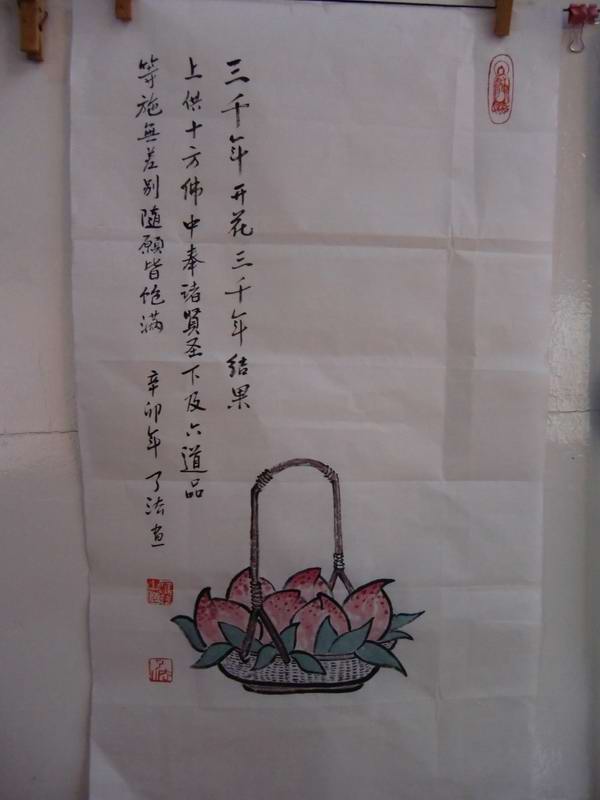 三千年开花三千年结果
上供十方佛中奉诸贤圣下及六道品
等施無差别随願皆饱满
辛卯年 了法画